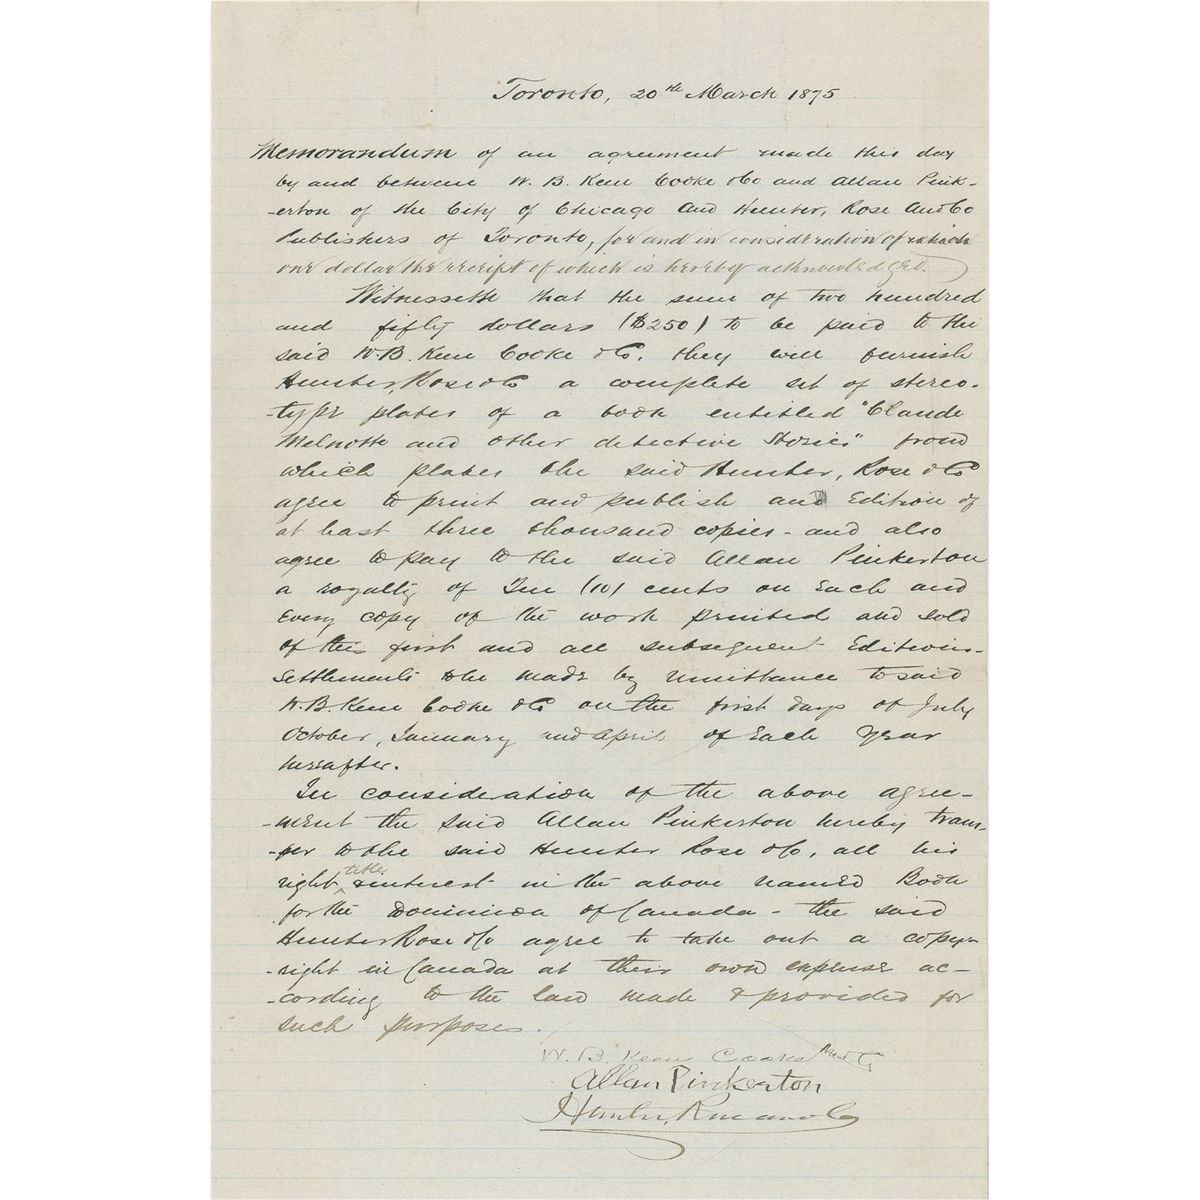 Toronto, 20th March 1875
Memorandum of an agreement made this day
by and between W. B. Keen Cooke & Co and Allan Pink-
-erton of the City of Chicago and Hunter, Rose and Co
Publishers of Toronto, for and in consideration of
one dollar the receipt of which is hereby acknowledged.
Witnesseth that the sum of two hundred
and fifty dollars ($250) to be paid to the
said W. B. Keen Cooke & Co. they will furnish
Hunter, Rose & Co a complete set of stereo-
-type plates of a book entitled "Claude
Melnotte and other detective Stories" from
which plates the said Hunter, Rose & Co
agree to print and publish an Edition of
at least three thousand copies - and also
agree to pay to the said Allan Pinkerton
a royalty of Ten (10) cents on Each and
Every copy of the work printed and sold
of this first and all subsequent Editions-
Settlements to be made by remittance to said
W. B. Keen Cooke & Co on the first days of July
October, January and April of Each Year
hereafter.
In consideration of the above agree-
-ment the said Allan Pinkerton hereby trans-
-fer to the said Hunter Rose & Co, all his
right, title & interest in the above named Book
for the Dominion of Canada - the said
Hunter Rose & Co agree to take out a copy-
-right in Canada at their own expense ac-
-cording to the law made & provided for
such purposes.
W. B. Keen Cooke and Co
Allan Pinkerton
Hunter, Rose and Co